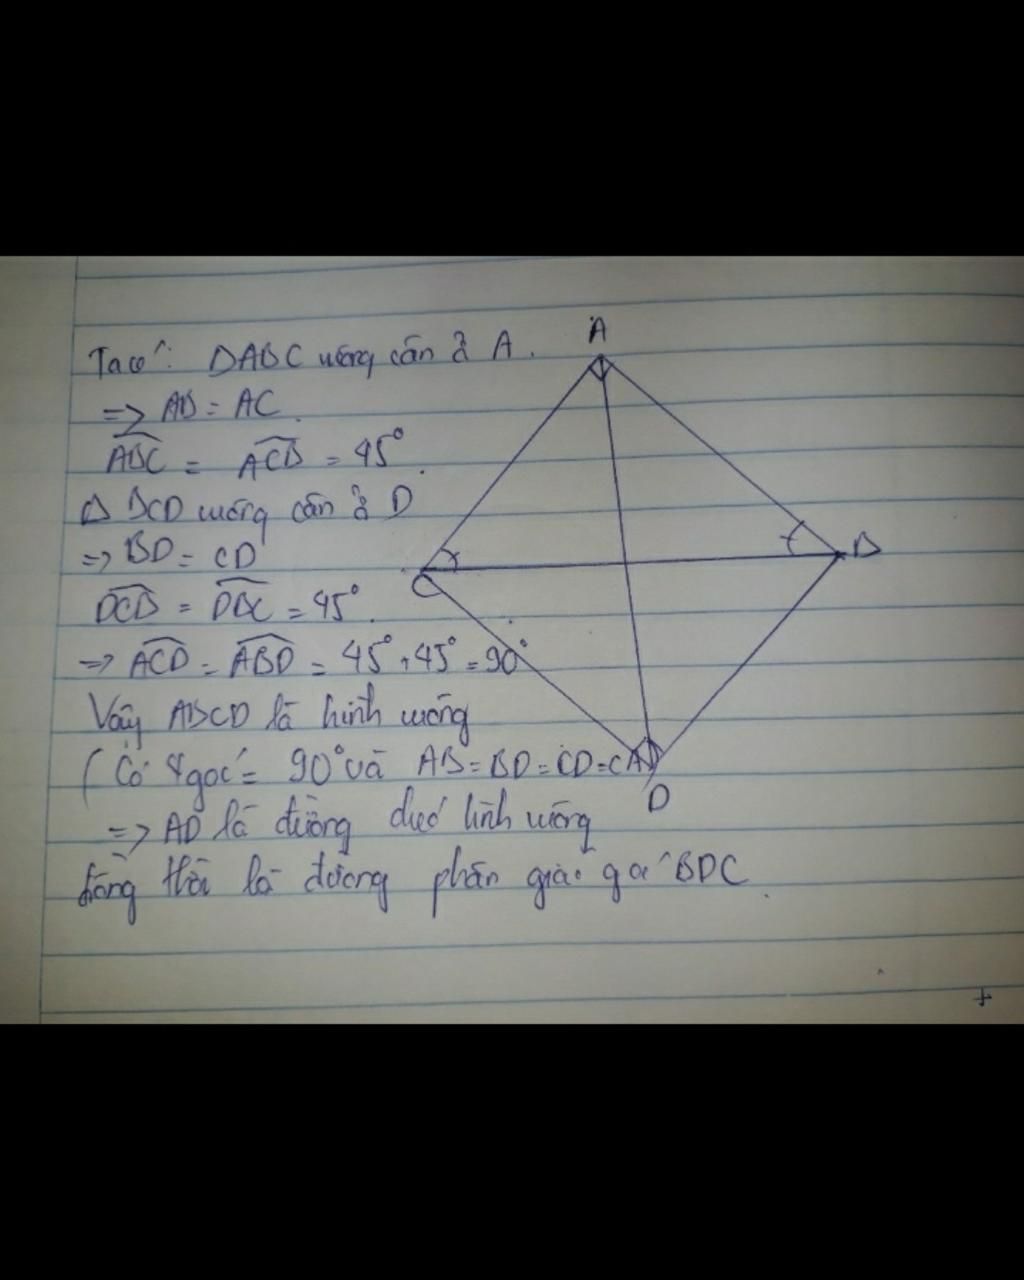 Ta có: ΔABC vuông cân ở A.
=> AB = AC
ABC = ACB = 45°.
Δ BCD vuông cân ở D
=> BD = CD
DCB = DBC = 45°.
=> ACD = ABD = 45° + 45° = 90°
Vậy ABCD là hình vuông
(Có 4 góc = 90° và AB = BD = CD = CA)
=> AD là đường chéo hình vuông
đồng thời là đường phân giác góc BDC.
A
B
C
D